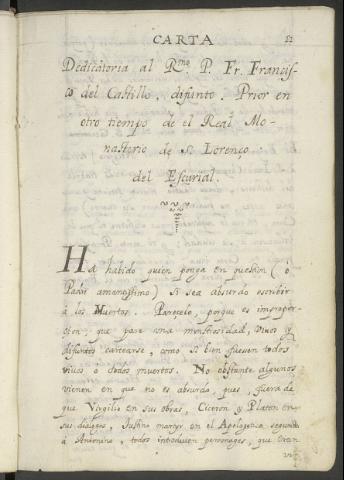 CARTA
Dedicatoria al Rmo P. Fr. Francis-
co del Castillo, difunto. Prior en
otro tiempo de el Real Mo-
nasterio de S. Lorenço
del Escurial.
Ha habido quien ponga en question (ò
Padre amantissimo) si sea absurdo escribir
à los Muertos. Pareçelo, porque es impropor-
cion, que pasa una monstruosidad, vivos y
difuntos cartearse, como si bien fuesen todos
vivos o todos muertos. No obstante algunos
vienen en que no es absurdo, pues, fuera de
que Virgilio en sus obras, Ciceron y Platon en
sus dialogos, Justino martyr en el Apologetica segunda
à Antonino, todos introducen personages, que